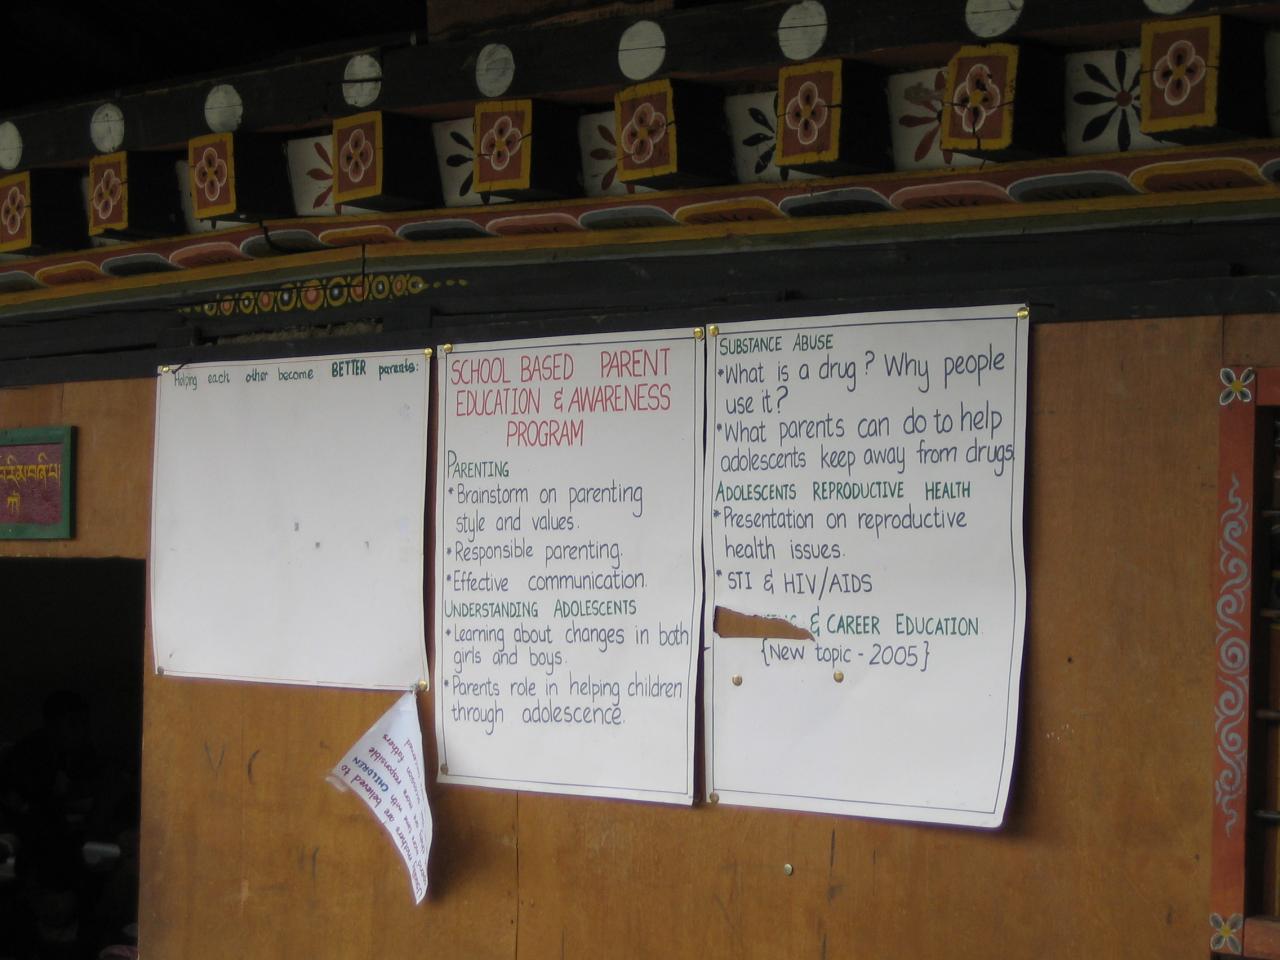 Helping each other become BETTER parents:
SCHOOL BASED PARENT
EDUCATION & AWARENESS
PROGRAM
PARENTING
*Brainstorm on parenting
style and values.
*Responsible parenting.
*Effective communication.
UNDERSTANDING ADOLESCENTS
*Learning about changes in both
girls and boys.
*Parents role in helping children
through adolescence.
SUBSTANCE ABUSE
*What is a drug? Why people
use it?
*What parents can do to help
adolescents keep away from drugs
ADOLESCENTS REPRODUCTIVE HEALTH
*Presentation on reproductive
health issues.
*STI & HIV/AIDS
& CAREER EDUCATION
{New topic - 2005}
mothers are believed to
more time with CHILDREN
are more responsible
fathers